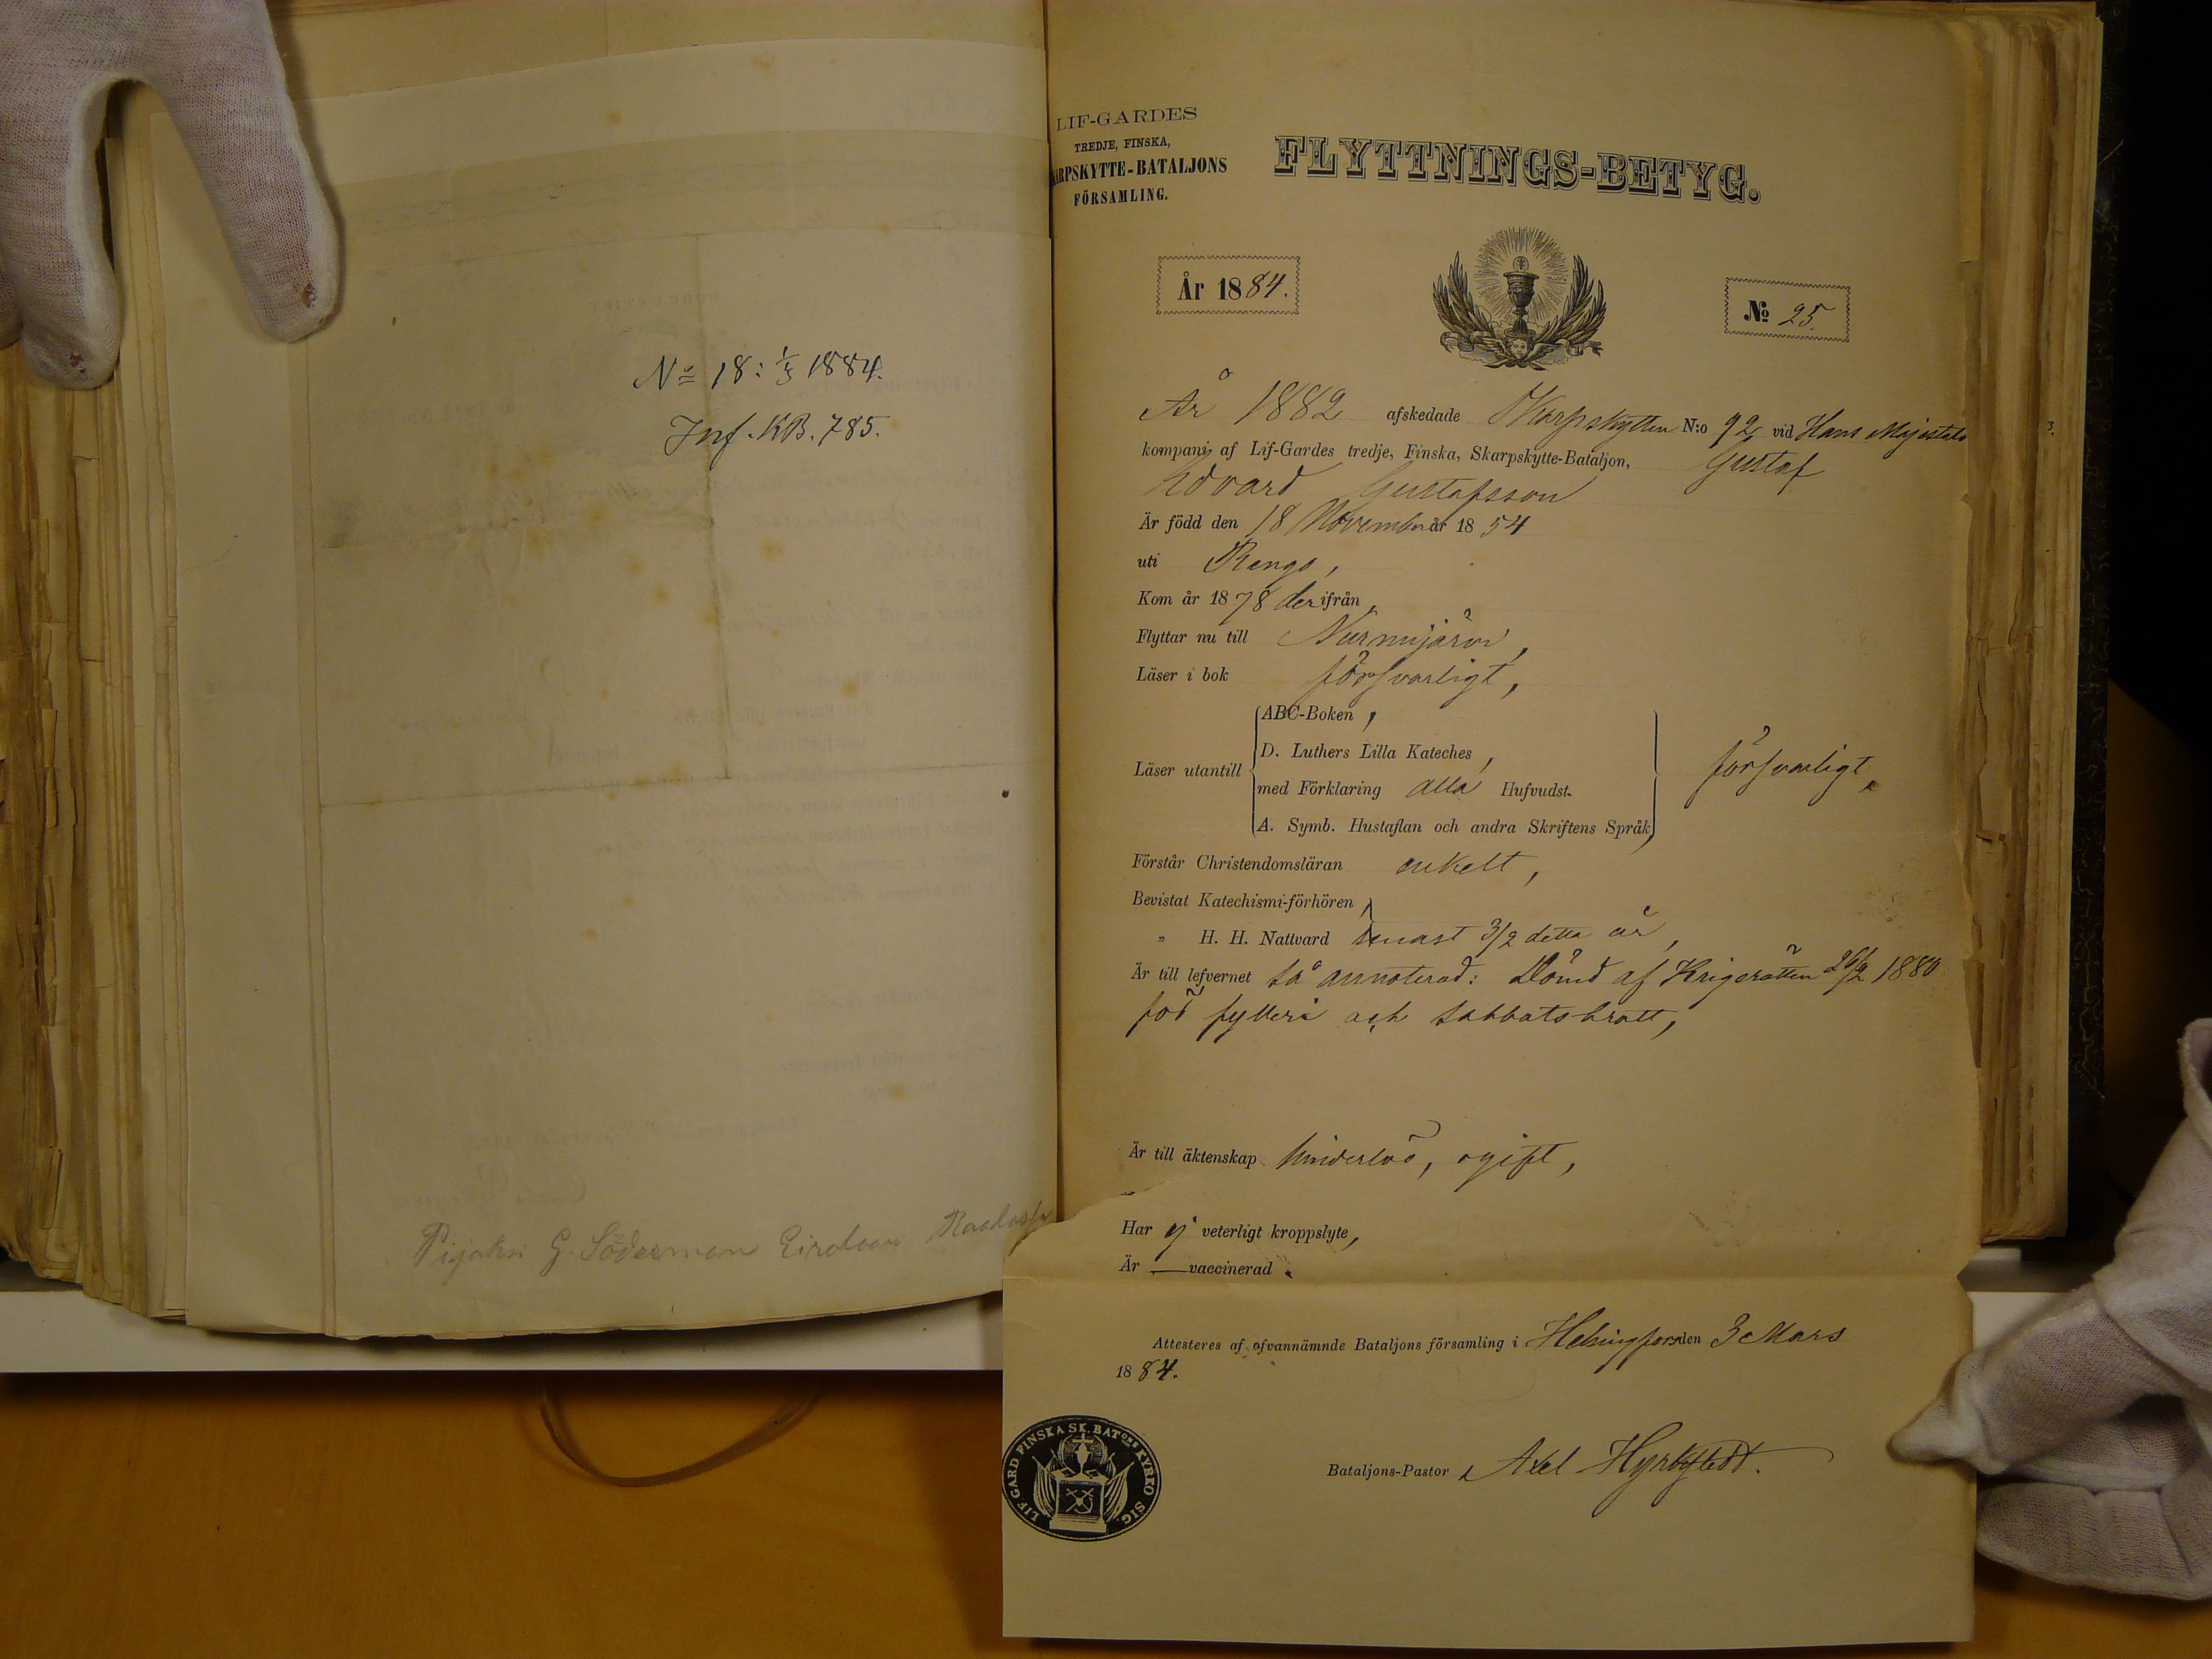 No 18: 1/3 1884.
Inf. KB. 785.
G. Söderman
LIF-GARDES
TREDJE, FINSKA,
SKARPSKYTTE-BATALJONS
FÖRSAMLING.
FLYTTNINGS-BETYG.
År 1884.
No 25.
År 1882 afskedade Skarpskytten N:o 92 vid Hans Majestäts
kompani af Lif-Gardes tredje, Finska, Skarpskytte-Bataljon, Gustaf
Edvard Gustafsson
Är född den 18 November år 1854
uti Rengo,
Kom år 1878 derifrån,
Flyttar nu till Nurmijärvi,
Läser i bok försvarligt,
Läser utantill
ABC-Boken,
D. Luthers Lilla Kateches,
med Förklaring alla Hufvudst.
A. Symb. Hustaflan och andra Skriftens Språk,
försvarligt,
Förstår Christendomsläran enkelt,
Bevistat Katechismi-förhören,
" H. H. Nattvard senast 3/2 detta år,
Är till lefvernet så annoterad: Dömd af Krigsrätten 26/2 1880
för fylleri och sabbatsbrott,
Är till äktenskap hinderlös, ogift,
Har ej veterligt kroppslyte,
Är — vaccinerad.
Attesteres af ofvannämnde Bataljons församling i Helsingfors den 3 Mars
1884.
LIF GARD FINSKA SK. BATONS KYRKO SIG.
Bataljons-Pastor, Axel Hyrkstedt.